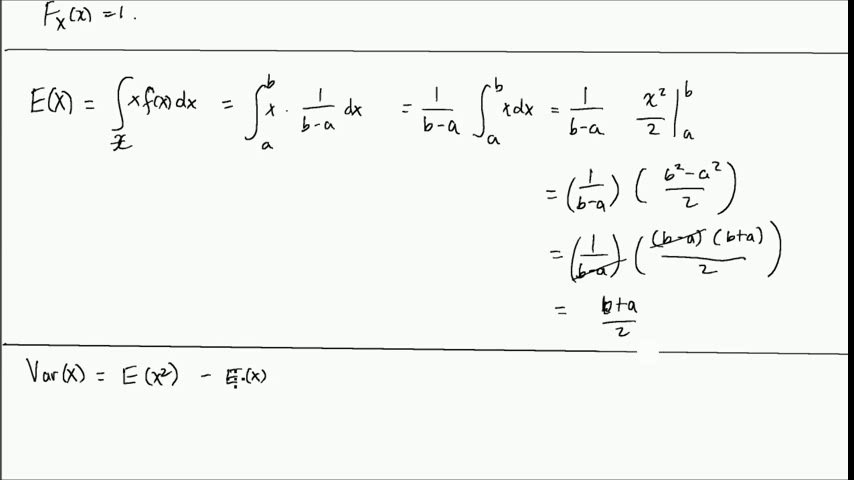 F_X(x) = 1.
E(X) = ∫_𝒳 x f(x) dx = ∫_a^b x · 1/(b-a) dx = 1/(b-a) ∫_a^b x dx = 1/(b-a) x²/2 |_a^b
= (1/(b-a)) ((b² - a²)/2)
= (1/(b-a)) ((b-a)(b+a)/2)
= (b+a)/2
Var(X) = E(x²) - E.(x)